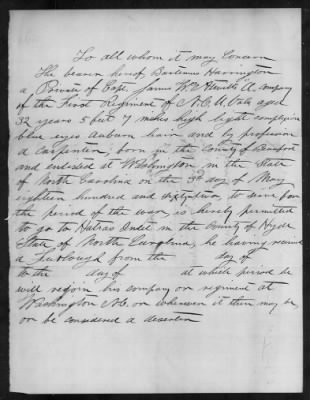 To all whom it may Concern
The bearer hereof, Harrington
a Private of Capt. James W. Company
of the First Regiment of N.C.U. Vols aged
32 years 5 feet 7 inches high light complexion
blue eyes Auburn hair and by profession
a Carpenter; born in the County of Beaufort
and enlisted at Washington in the State
of North Carolina on the 3d day of May
eighteen hundred and sixty two, to serve for
the period of the war, is hereby permitted
to go to in the County of Hyde
State of North Carolina, he having received
a Furlough from the day of
to the day of at which period he
will rejoin his company or regiment at
Washington N.C. or wherever it then may be,
or be considered a deserter